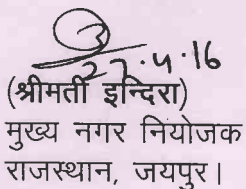 27.4.16
(श्रीमती इन्दिरा)
मुख्य नगर नियोजक
राजस्थान, जयपुर।